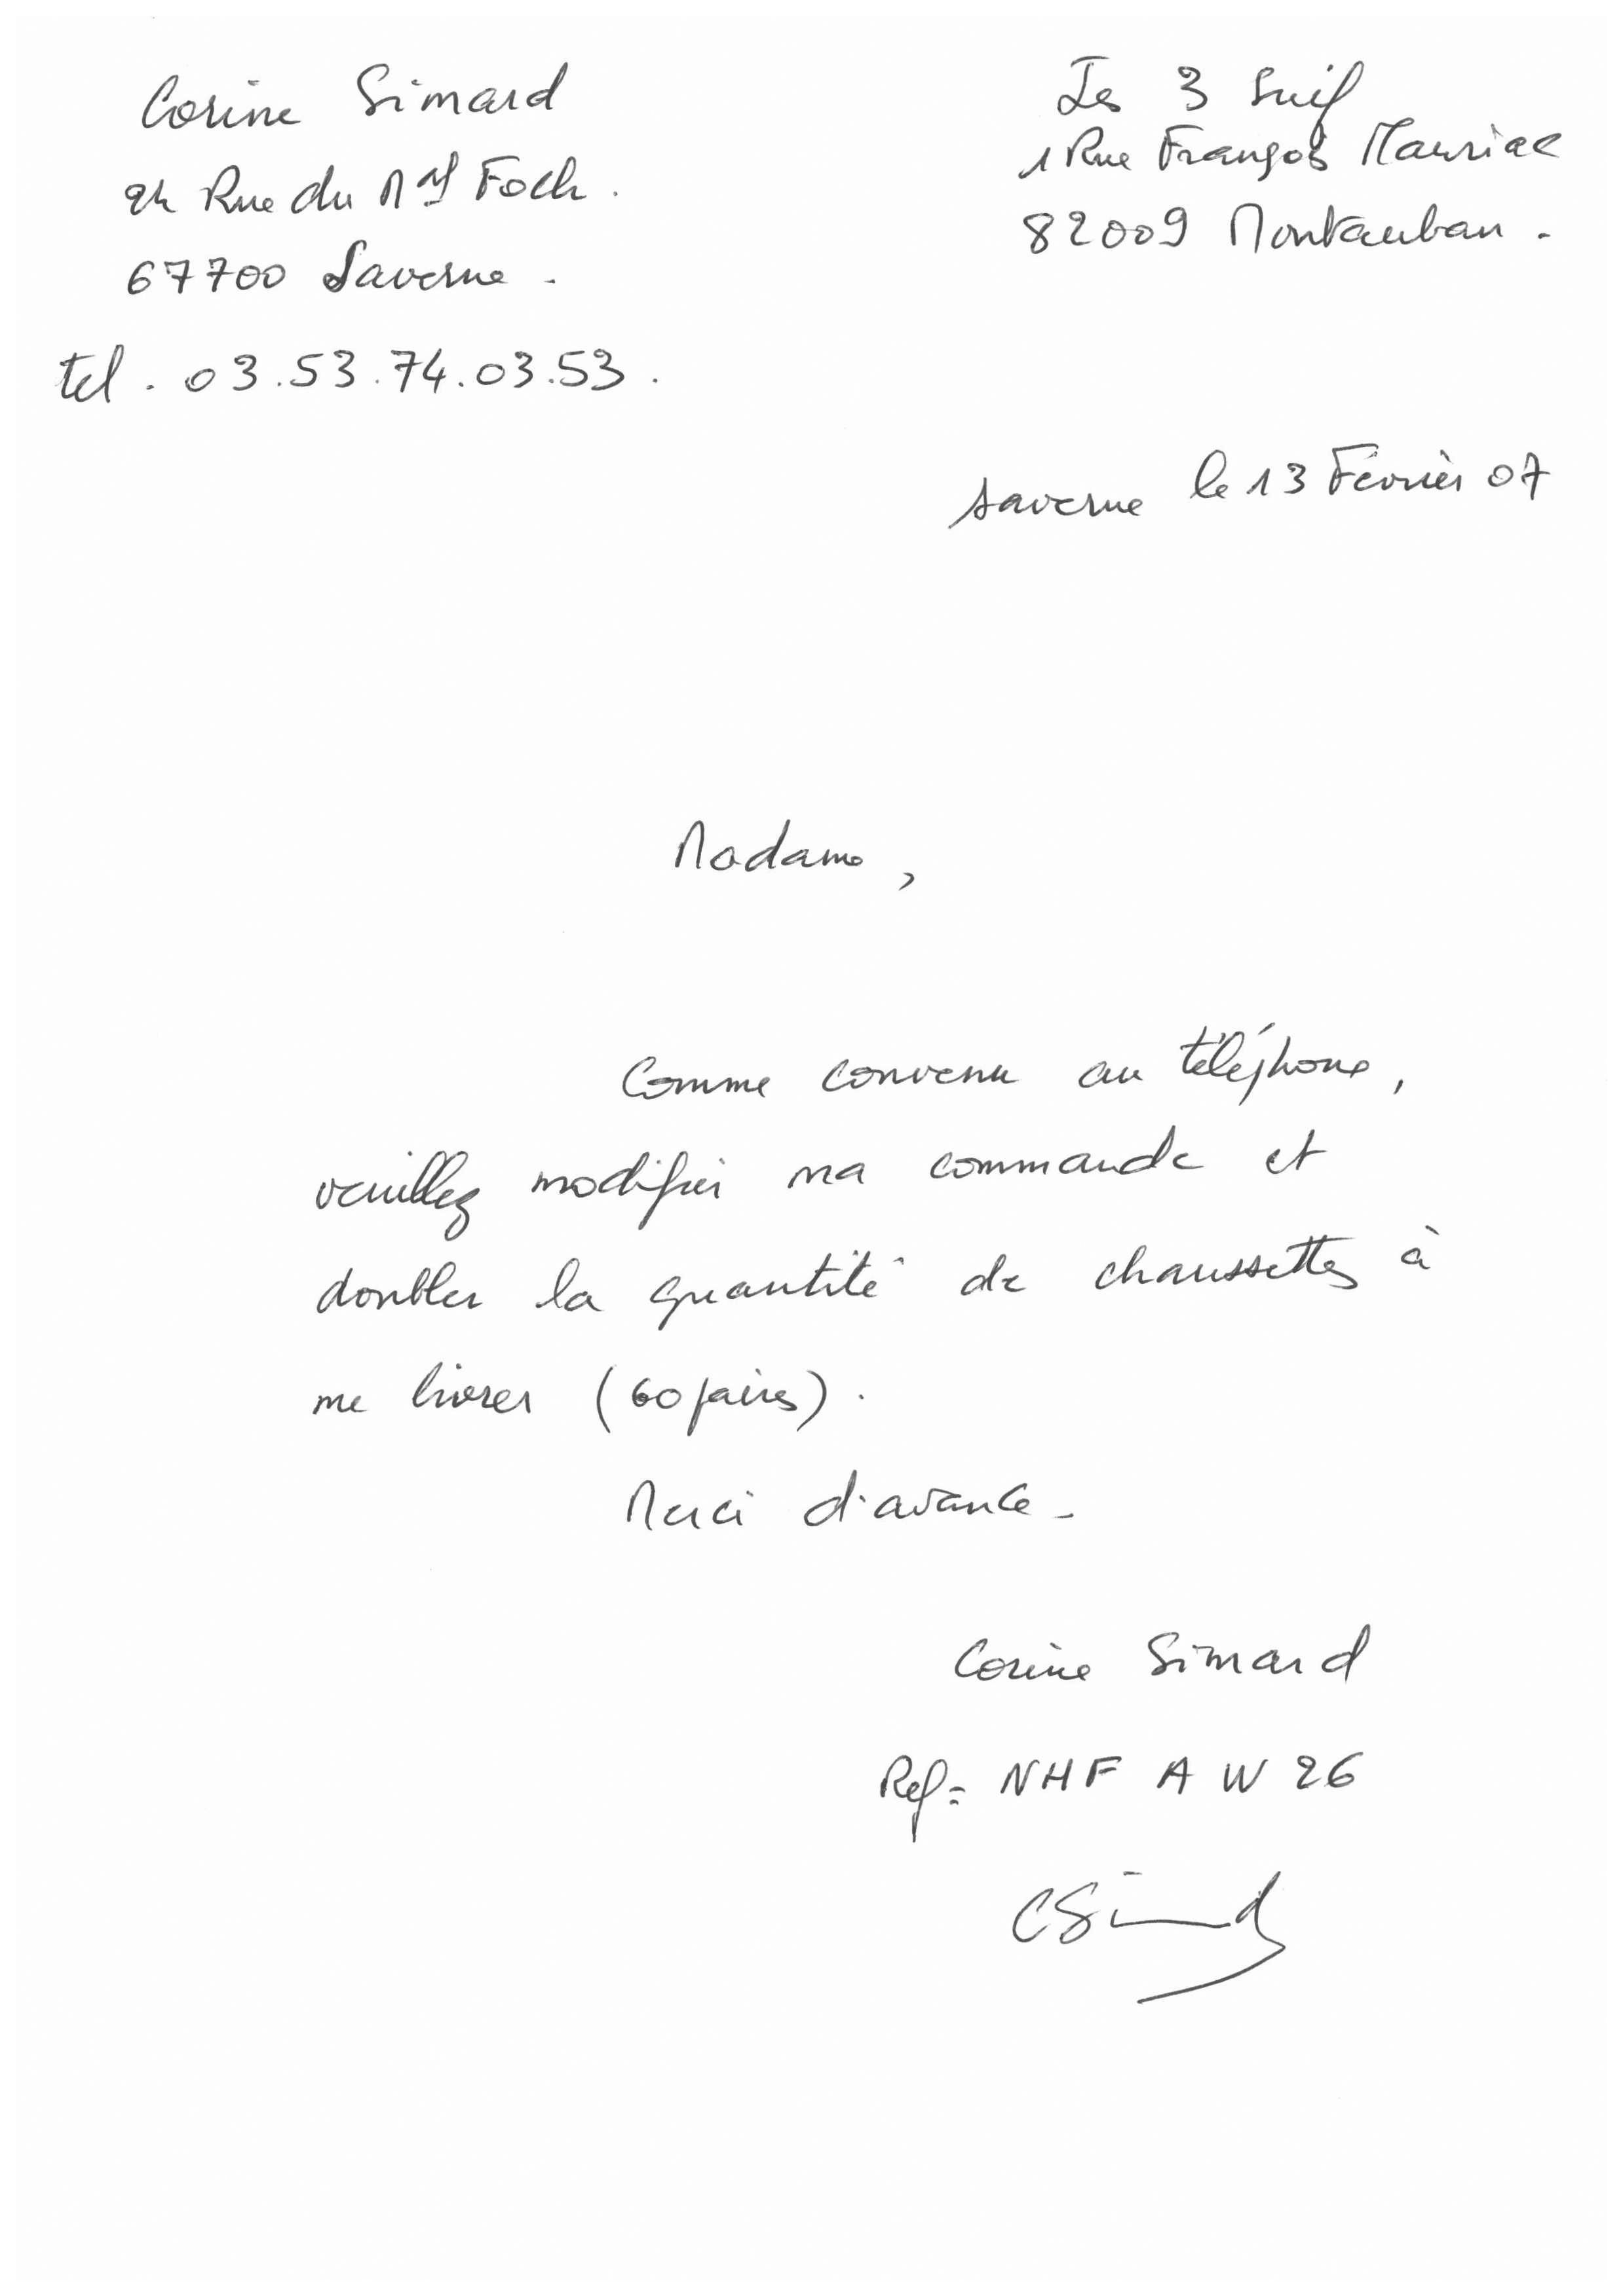 Corine Simard
24 Rue du Mal Foch.
67700 Saverne.
tel. 03.53.74.03.53.
Les 3 Suif
1 Rue François Mauriac
82009 Montauban.
Saverne le 13 Février 07
Madame,
Comme convenu au téléphone,
veuillez modifier ma commande et
doubler la quantité de chaussettes à
me livrer (60 paires).
Merci d'avance.
Corine Simard
Ref = NHF A W 26
CSimard